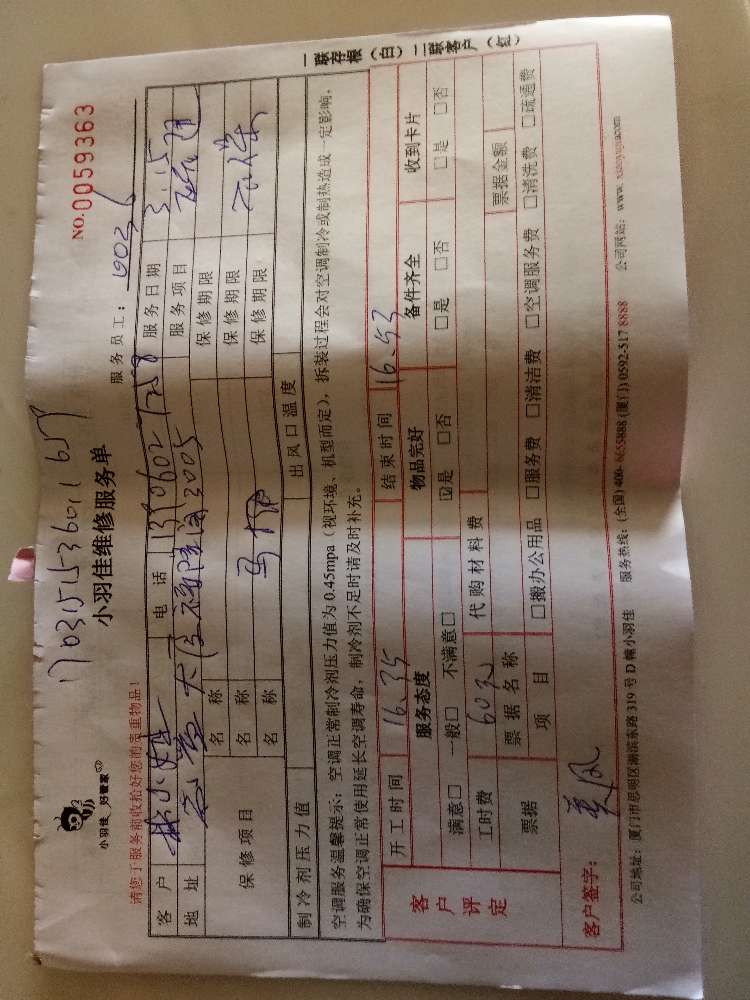 小羽佳 好管家
17031515360111659
小羽佳维修服务单
NO.0059363
服务员工：
请您于服务前收拾好您的贵重物品！
客户 电话 服务日期 3.15
地址 大厦 2005 服务项目
保修项目 名称 保修期限
名称 马桶 保修期限
名称 保修期限
制冷剂压力值 出风口温度
空调服务温馨提示：空调正常制冷剂压力值为0.45mpa（视环境、机型而定），拆装过程会对空调制冷或制热造成一定影响，
为确保空调正常使用延长空调寿命，制冷剂不足时请及时补充。
客户评定
开工时间 16.35 结束时间 16.53
服务态度 物品完好 备件齐全 收到卡片
满意□ 一般□ 不满意□ ☑是 □否 □是 □否 □是 □否
工时费 60元 代购材料费
票据 票据名称 票据金额
项目 □搬办公用品 □服务费 □清洁费 □空调服务费 □清洗费 □疏通费
客户签字：
公司地址：厦门市思明区湖滨东路319号D幢小羽佳 服务热线：(全国)400-6655888 (厦门)0592-517 8888 公司网站：www.xiaoyujia.com
一联存根（白）二联客户（红）